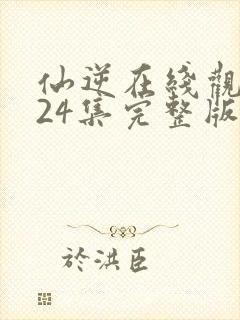 仙逆在綫觀
24集完整版
於洪臣